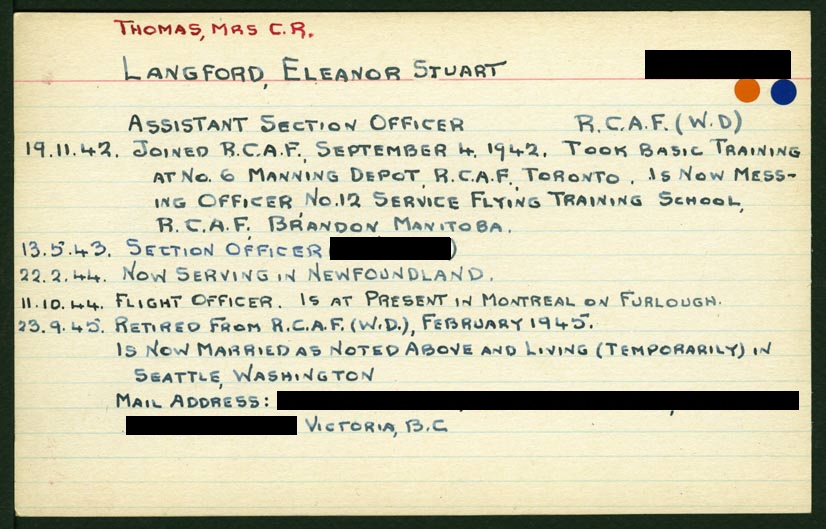 THOMAS, MRS C.R.
LANGFORD, ELEANOR STUART
ASSISTANT SECTION OFFICER R.C.A.F. (W.D)
19.11.42. JOINED R.C.A.F., SEPTEMBER 4, 1942. TOOK BASIC TRAINING
AT NO. 6 MANNING DEPOT, R.C.A.F., TORONTO. IS NOW MESS-
ING OFFICER NO.12 SERVICE FLYING TRAINING SCHOOL,
R.C.A.F., BRANDON MANITOBA.
13.5.43. SECTION OFFICER ( )
22.2.44. NOW SERVING IN NEWFOUNDLAND.
11.10.44. FLIGHT OFFICER. IS AT PRESENT IN MONTREAL ON FURLOUGH.
23.9.45. RETIRED FROM R.C.A.F. (W.D.), FEBRUARY 1945.
IS NOW MARRIED AS NOTED ABOVE AND LIVING (TEMPORARILY) IN
SEATTLE, WASHINGTON
MAIL ADDRESS:
VICTORIA, B.C